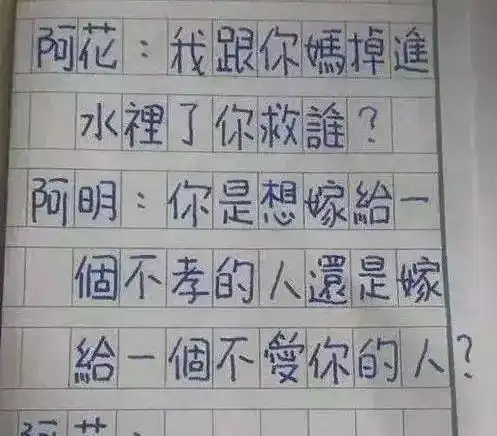 阿花：我跟你媽掉進
水裡了你救誰？
阿明：你是想嫁給一
個不孝的人還是嫁
給一個不愛你的人？
阿花：